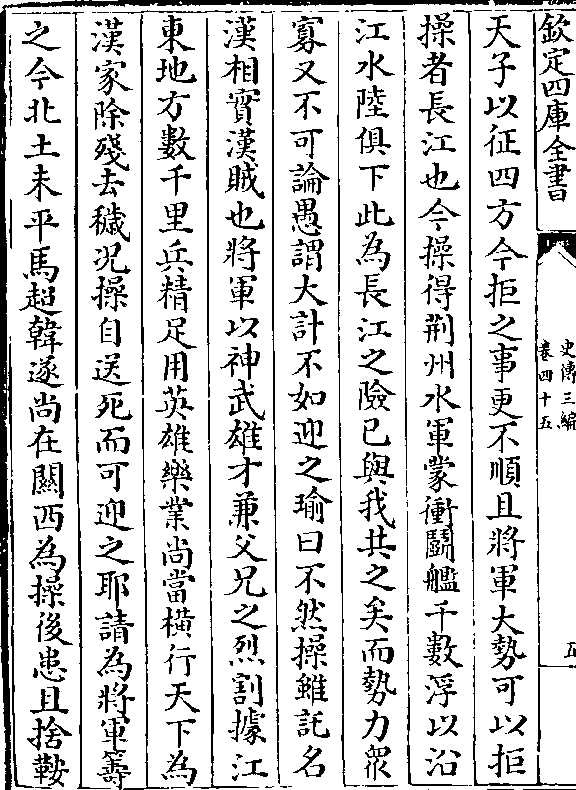 欽定四庫全書
史傳三編
卷四十五
五
天子以征四方今拒之事更不順且將軍大勢可以拒
操者長江也今操得荆州水軍蒙衝鬭艦千數浮以沿
江水陸俱下此為長江之險已與我共之矣而勢力衆
寡又不可論愚謂大計不如迎之瑜曰不然操雖託名
漢相實漢賊也將軍以神武雄才兼父兄之烈割據江
東地方數千里兵精足用英雄樂業尚當橫行天下為
漢家除殘去穢况操自送死而可迎之耶請為將軍籌
之今北土未平馬超韓遂尚在關西為操後患且捨鞍